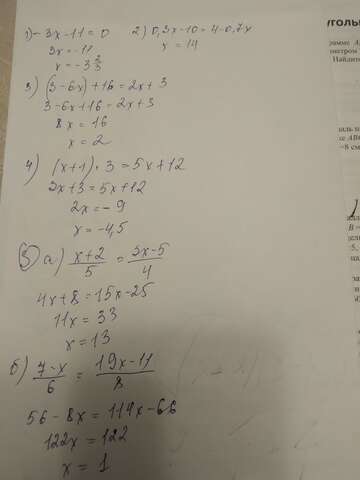 1) -3x-11=0
3x=-11
x=-3 2/3
2) 0,3x-10=4-0,7x
x=14
3) (3-6x)+16=2x+3
3-6x+16=2x+3
8x=16
x=2
4) (x+1)·3=5x+12
3x+3=5x+12
2x=-9
x=-4,5
5) а) (x+2)/5=(3x-5)/4
4x+8=15x-25
11x=33
x=13
б) (7-x)/6=(19x-11)/8
56-8x=114x-66
122x=122
x=1
УГОЛЬ
Найдите